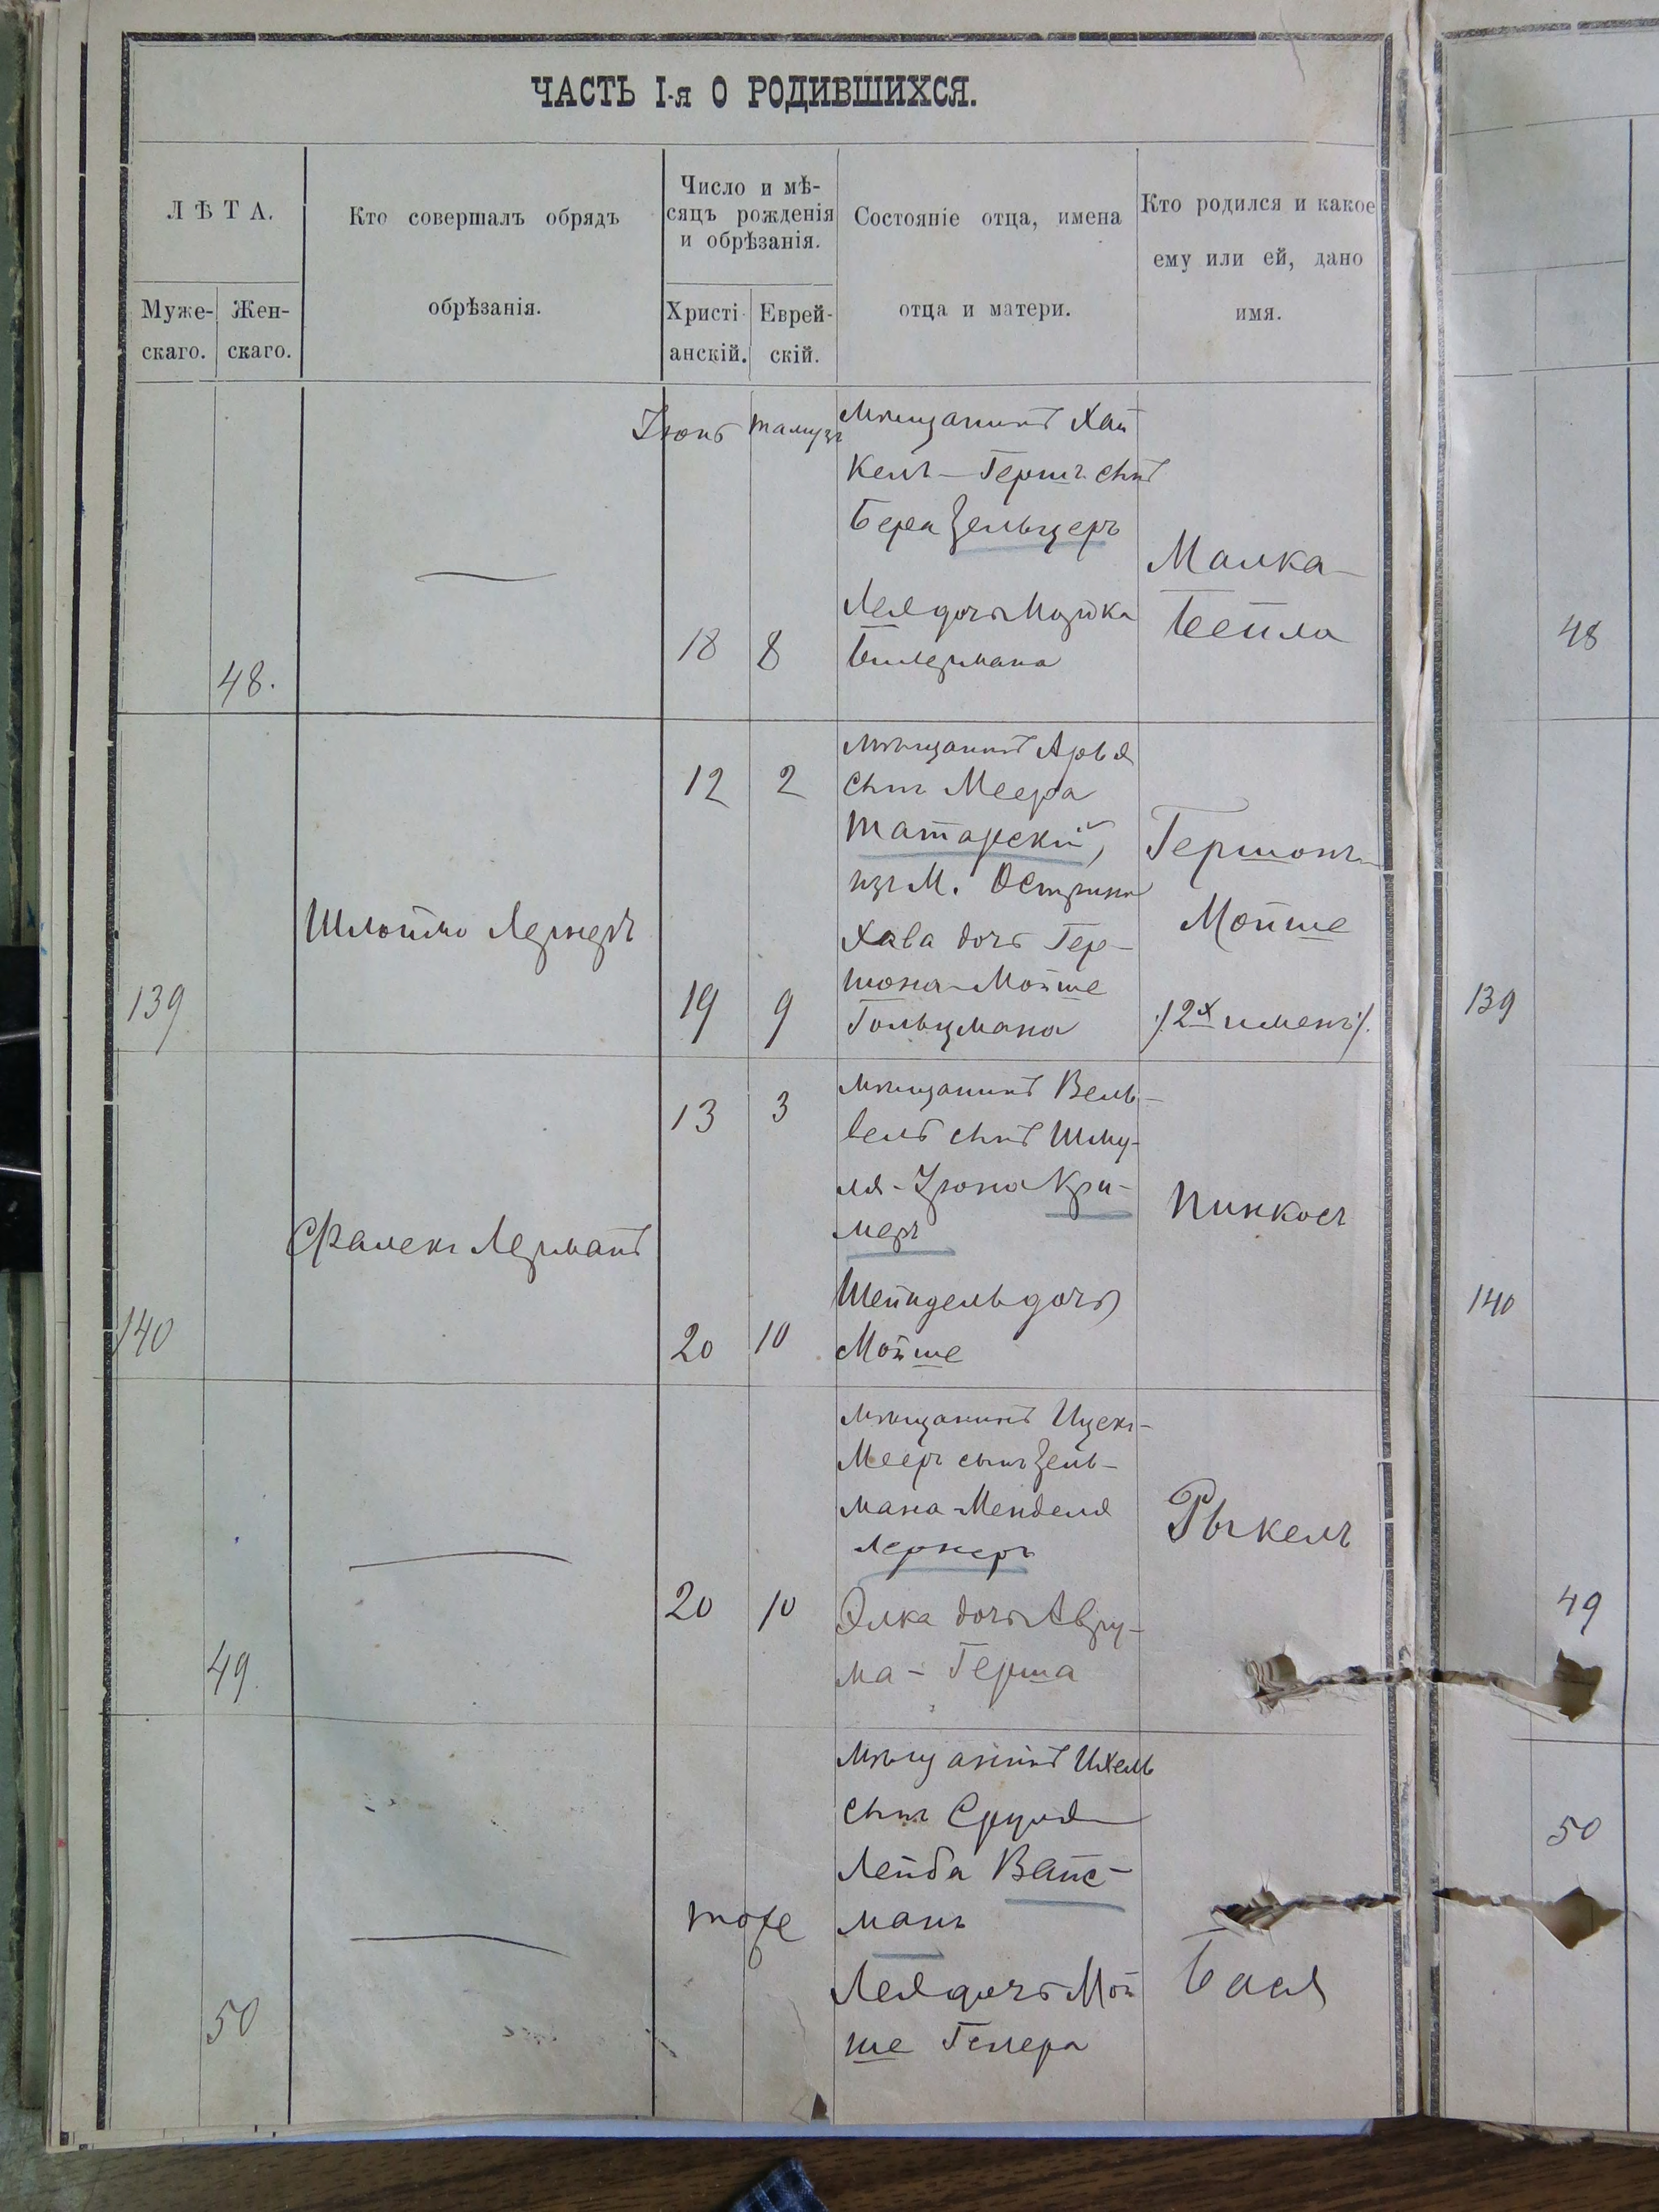 ЧАСТЬ I-я О РОДИВШИХСЯ.
ЛѢТА.
Муже-
скаго.
Жен-
скаго.
Кто совершалъ обрядъ
обрѣзанія.
Число и мѣ-
сяцъ рожденія
и обрѣзанія.
Христі-
анскій.
Еврей-
скій.
Состояніе отца, имена
отца и матери.
Кто родился и какое
ему или ей, дано
имя.
48.
Іюнь
тамузъ
18
8
Мѣщанинъ Хай
кель-Гершъ сынъ
Бера Зельцеръ
Лея дочь Мошка
Бидермана
Малка-
Бейла
48
139
Шлойме Лернеръ
12
2
19
9
Мѣщанинъ Арья
сынъ Меера
Татарскій,
изъ М. Острина
Хава дочь Гер-
шона-Мойше
Гольцмана
Гершонъ-
Мойше
/2х именъ/.
139
140
Фалекъ Лерманъ
13
3
20
10
Мѣщанинъ Вель-
вель сынъ Шму-
ля-Зуона Кри-
меръ
Шейндель дочь
Мойше
Пинкосъ
140
49
20
10
Мѣщанинъ Ицекъ-
Мееръ сынъ Зель-
мана-Менделя
Лернеръ
Элка дочь Авру-
ма-Герша
Рыкель
49
50
тоже
Мѣщанинъ Ихель
сынъ Сруля
Лейба Вайс-
манъ
Лея дочь Мой
ше Гелера
Бася
50